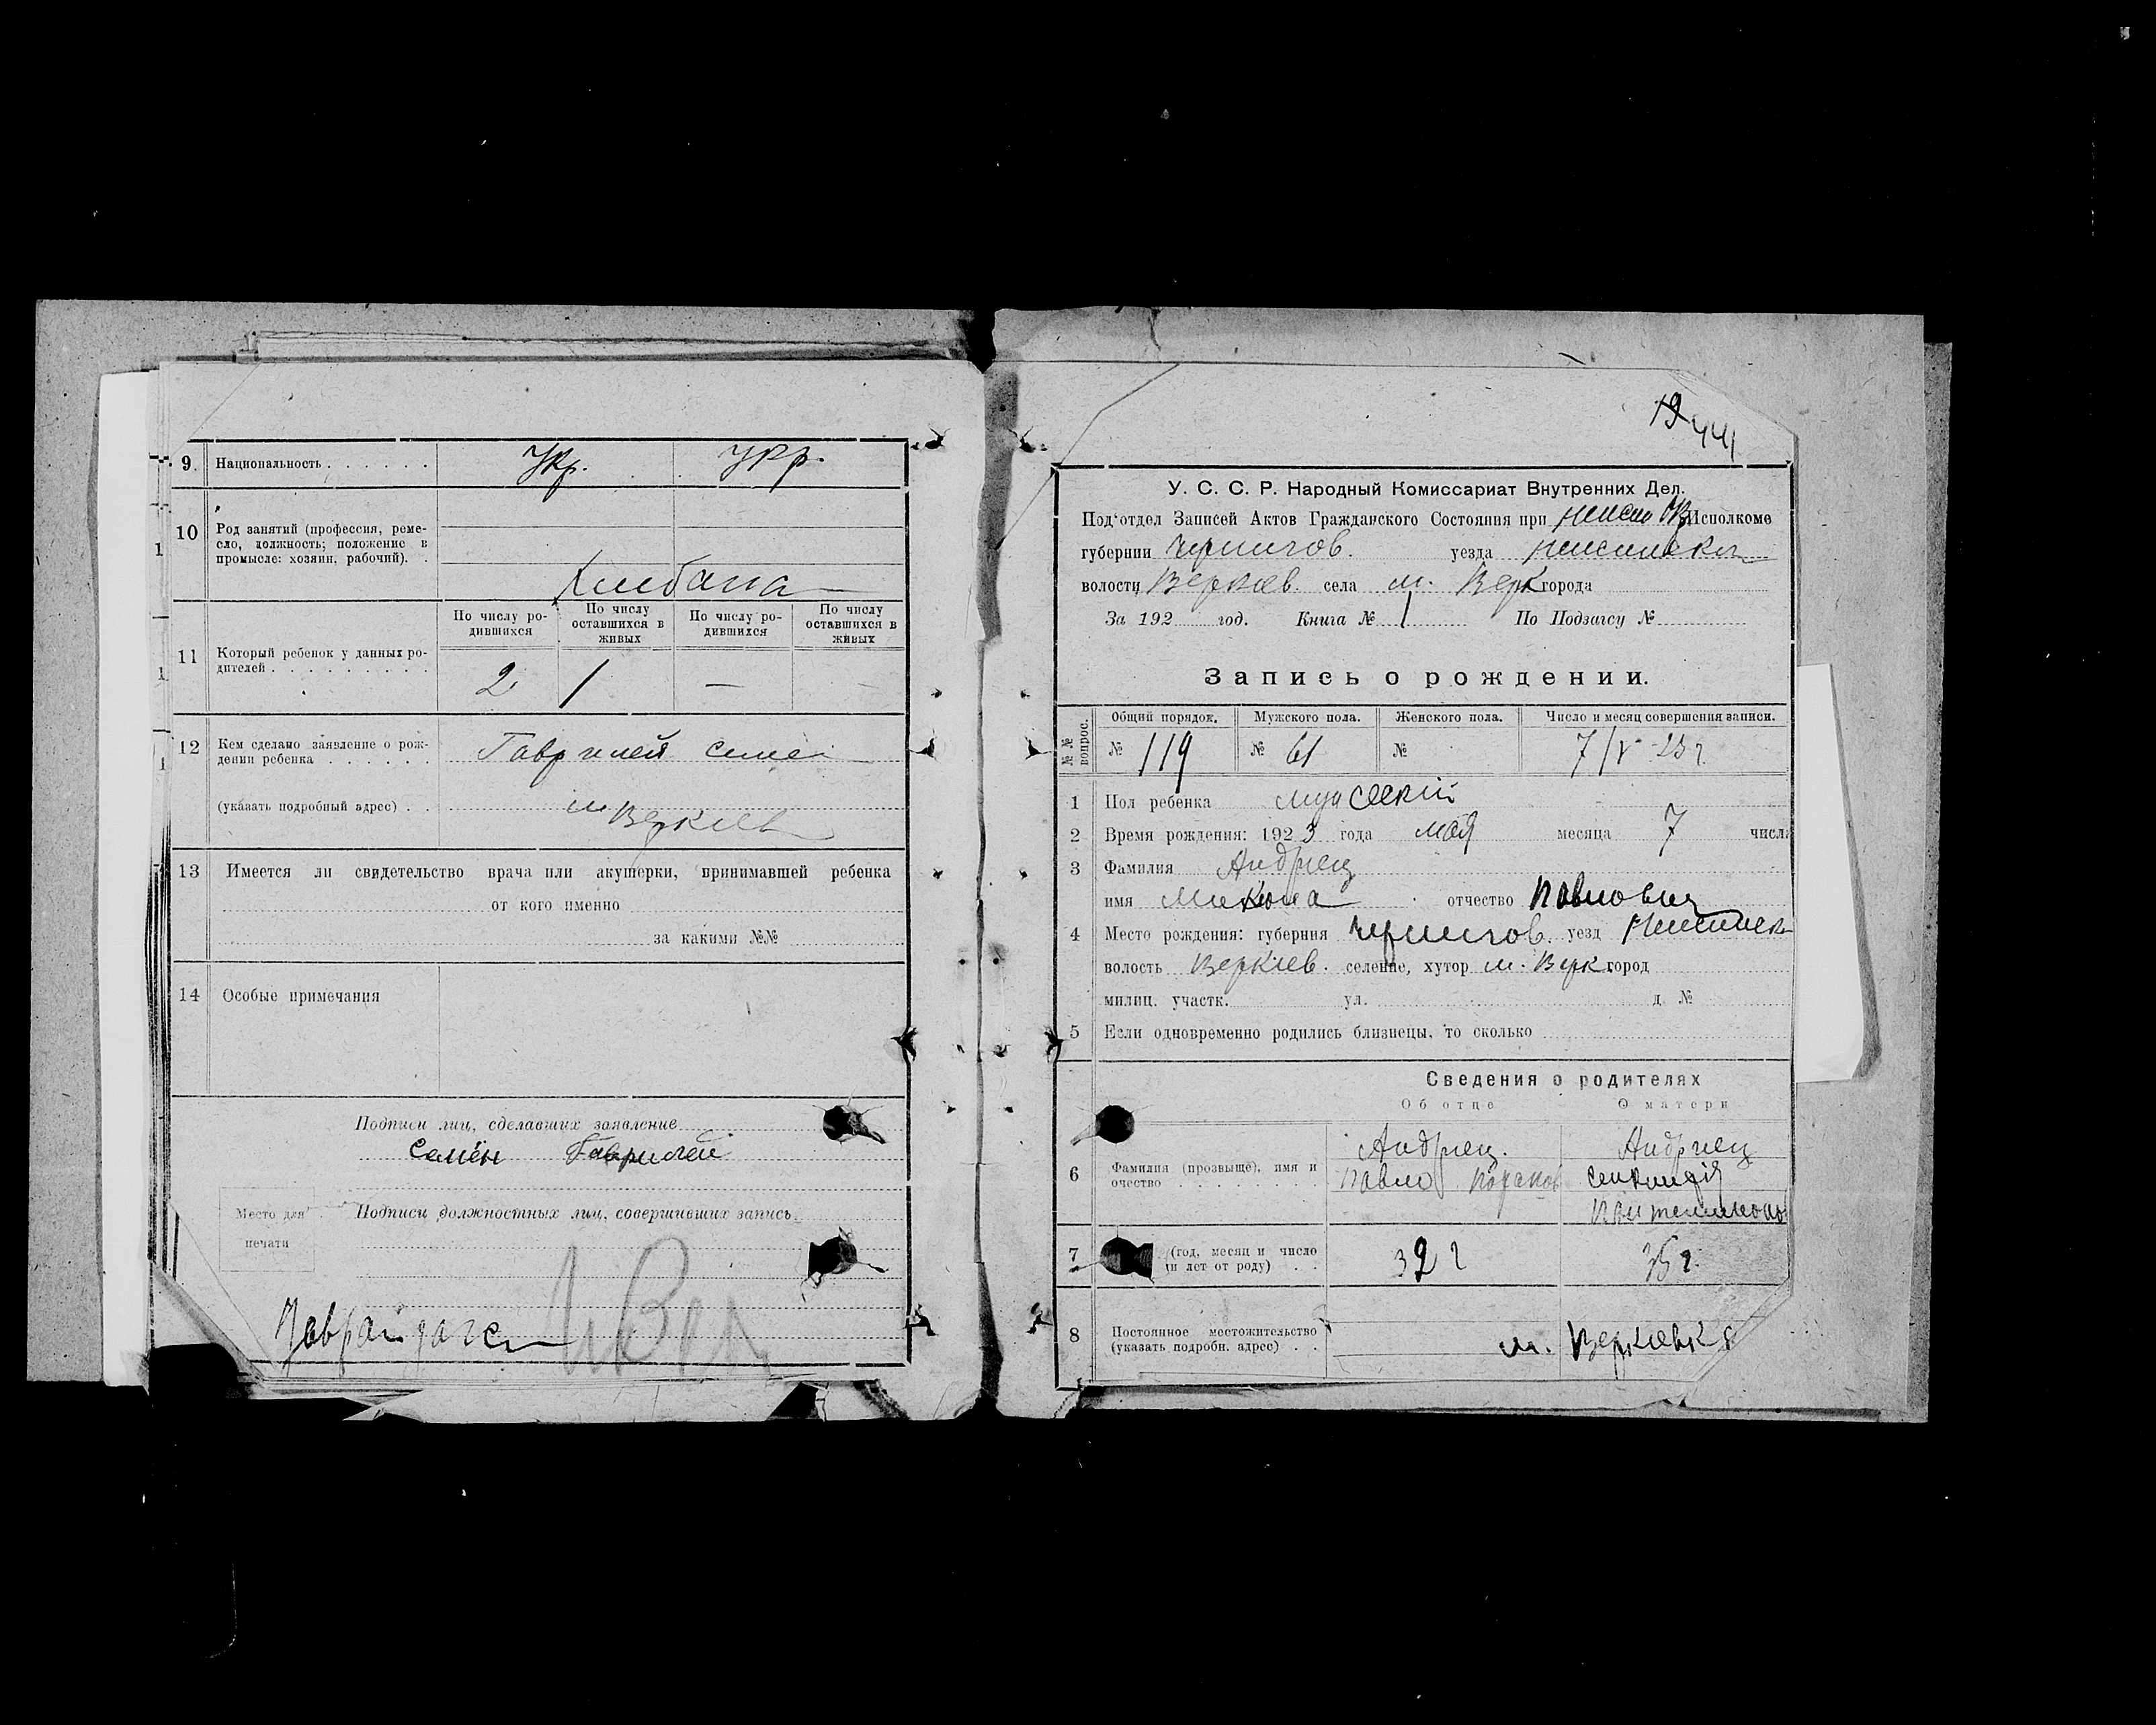 9. Национальность . . . . . . Укр. Укр.
10 Род занятий (профессия, реме-
сло, должность; положение в
промысле: хозяин, рабочий). .
По числу ро-
дившихся
По числу
оставшихся в
живых
По числу ро-
дившихся
По числу
оставшихся в
живых
11 Который ребенок у данных ро-
дителей . . . . . . . . . 2 1 —
12 Кем сделано заявление о рож-
дении ребенка . . . . . .
(указать подробный адрес) . . м Веркиев
13 Имеется ли свидетельство врача или акушерки, принимавшей ребенка
от кого именно
за какими №№
14 Особые примечания
Подписи лиц, сделавших заявление
Семен Гаврилей
Место для
печати
Подписи должностных лиц, совершивших запись
19 44
У. С. С. Р. Народный Комиссариат Внутренних Дел.
Под'отдел Записей Актов Гражданского Состояния при Исполкоме
губернии Чернигов. уезда Нежинск
волости Веркиев. села м. Верк города
За 192 год. Книга № 1 По Подзагсу №
Запись о рождении.
№№ вопрос.
Общий порядок. Мужского пола. Женского пола. Число и месяц совершения записи.
№ 119 № 61 № 7/V 23 г.
1 Пол ребенка мужеский
2 Время рождения: 1923 года мая месяца 7 числа
3 Фамилия Андриец
имя Микола отчество Павлович
4 Место рождения: губерния Чернигов. уезд Нежинск
волость Веркиев. селение, хутор м. Верк город
милиц. участк. ул. д. №
5 Если одновременно родились близнецы, то сколько
Сведения о родителях
Об отце О матери
6 Фамилия (прозвище), имя и
очество . . . . . . . .
Андриец.
Павло
Андриец
7 (год, месяц и число
и лет от роду) . . 32 г 35 г.
8 Постоянное местожительство
(указать подробн. адрес) . . м. Веркиевка